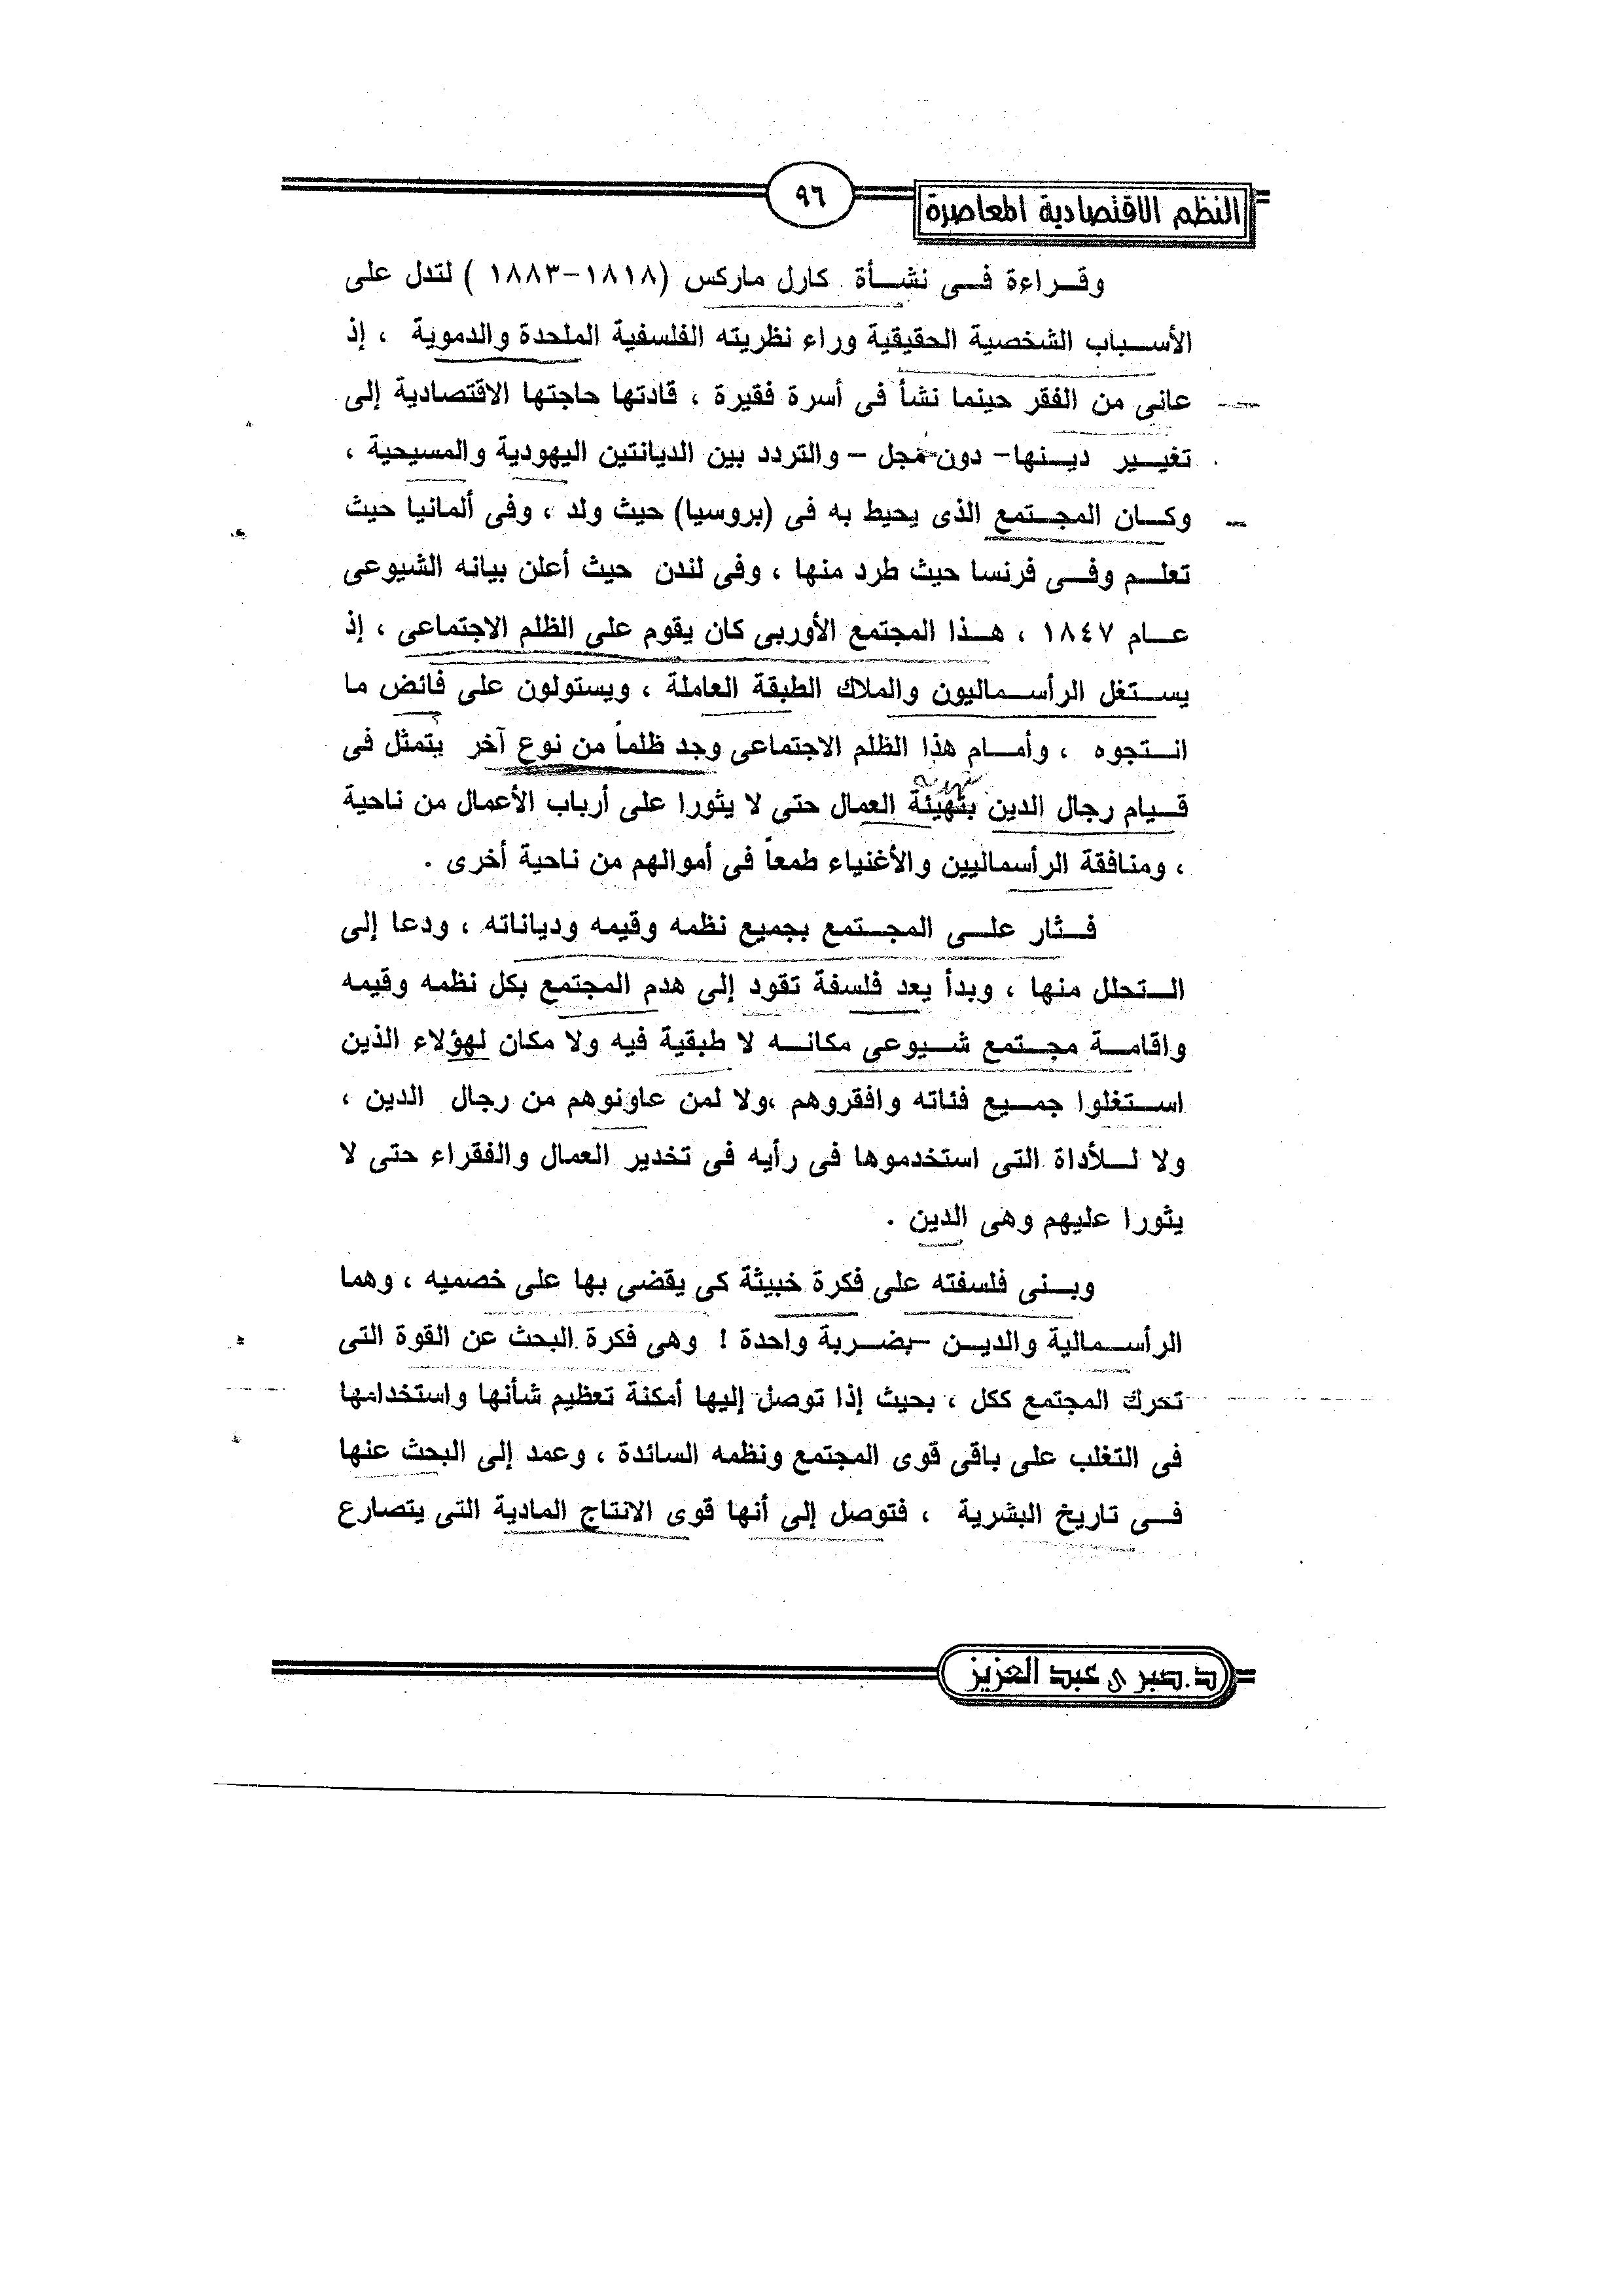 النظم الاقتصادية المعاصرة
٩٦
وقراءة فى نشأة كارل ماركس (١٨١٨-١٨٨٣ ) لتدل على
الأسباب الشخصية الحقيقية وراء نظريته الفلسفية الملحدة والدموية ، إذ
عانى من الفقر حينما نشأ فى أسرة فقيرة ، قادتها حاجتها الاقتصادية إلى
تغيير دينها- دون خجل - والتردد بين الديانتين اليهودية والمسيحية ،
وكان المجتمع الذى يحيط به فى (بروسيا) حيث ولد ، وفى ألمانيا حيث
تعلم وفى فرنسا حيث طرد منها ، وفى لندن حيث أعلن بيانه الشيوعى
عام ١٨٤٧ ، هذا المجتمع الأوربى كان يقوم على الظلم الاجتماعى ، إذ
يستغل الرأسماليون والملاك الطبقة العاملة ، ويستولون على فائض ما
انتجوه ، وأمام هذا الظلم الاجتماعى وجد ظلماً من نوع آخر يتمثل فى
قيام رجال الدين بتهيئة العمال حتى لا يثورا على أرباب الأعمال من ناحية
، ومنافقة الرأسماليين والأغنياء طمعاً فى أموالهم من ناحية أخرى .
فثار على المجتمع بجميع نظمه وقيمه ودياناته ، ودعا إلى
التحلل منها ، وبدأ يعد فلسفة تقود إلى هدم المجتمع بكل نظمه وقيمه
واقامة مجتمع شيوعى مكانه لا طبقية فيه ولا مكان لهؤلاء الذين
استغلوا جميع فئاته وافقروهم ،ولا لمن عاونوهم من رجال الدين ،
ولا للأداة التى استخدموها فى رأيه فى تخدير العمال والفقراء حتى لا
يثورا عليهم وهى الدين .
وبنى فلسفته على فكرة خبيثة كى يقضى بها على خصميه ، وهما
الرأسمالية والدين -بضربة واحدة ! وهى فكرة البحث عن القوة التى
تحرك المجتمع ككل ، بحيث إذا توصل إليها أمكنة تعظيم شأنها واستخدامها
فى التغلب على باقى قوى المجتمع ونظمه السائدة ، وعمد إلى البحث عنها
فى تاريخ البشرية ، فتوصل إلى أنها قوى الانتاج المادية التى يتصارع
د.صبرى عبد العزيز